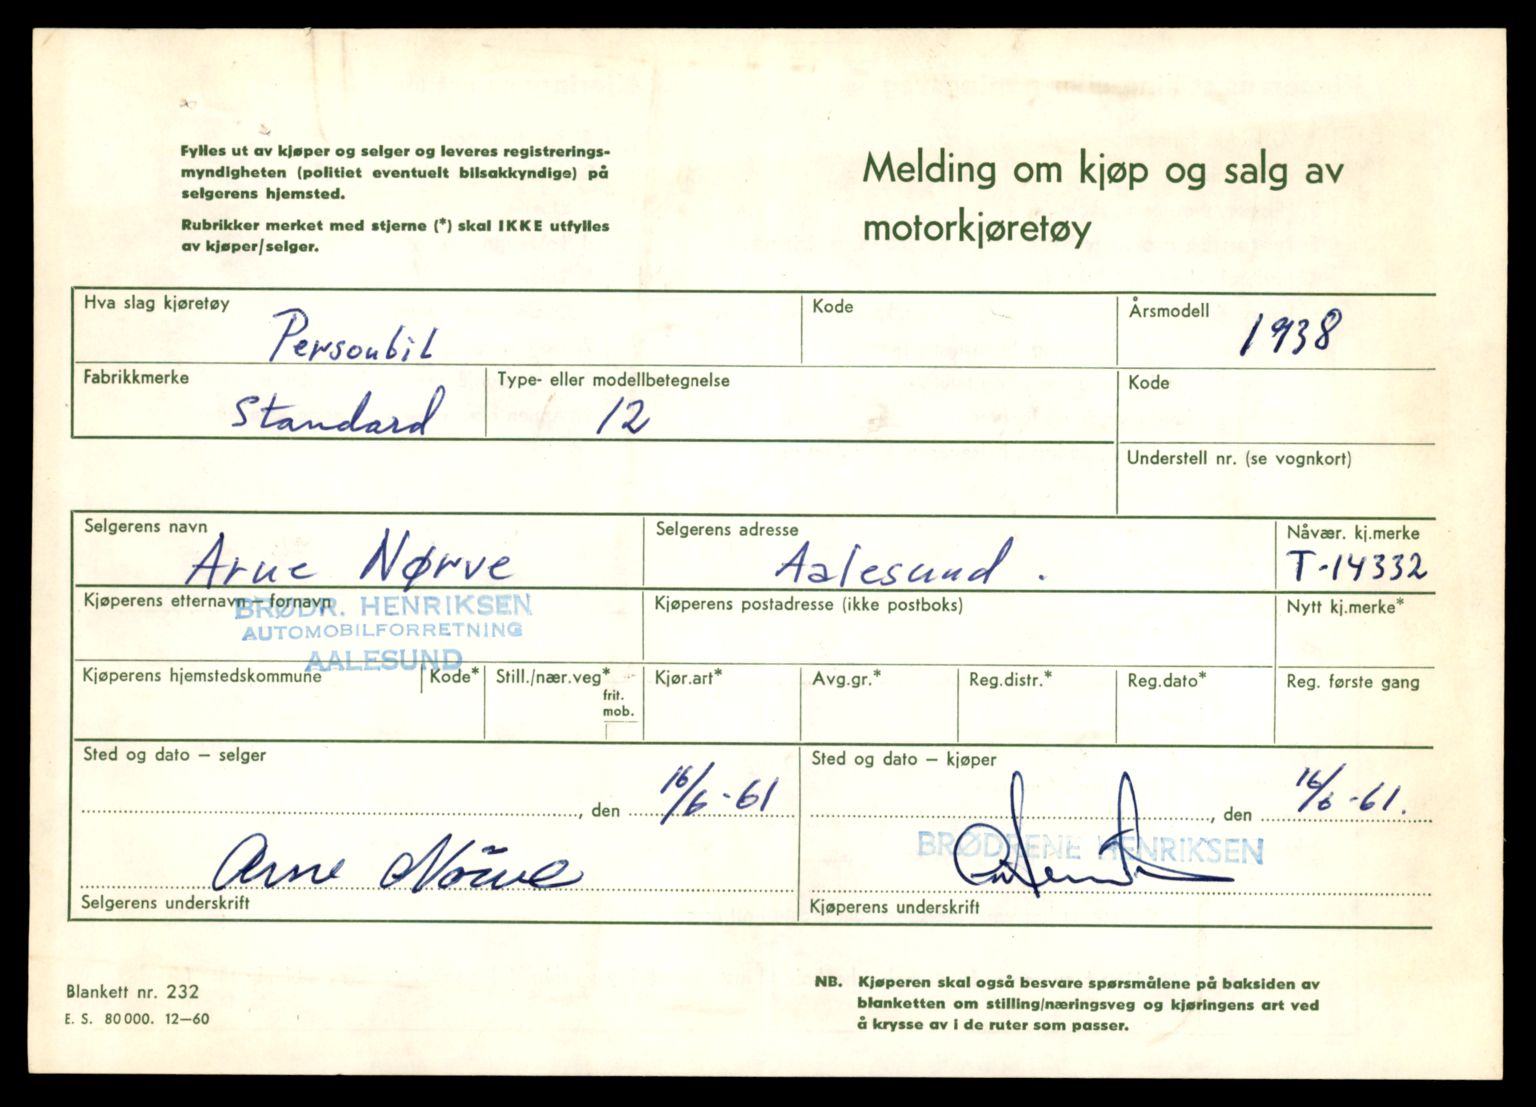 Fylles ut av kjøper og selger og leveres registrerings-
myndigheten (politiet eventuelt bilsakkyndige) på
selgerens hjemsted.
Rubrikker merket med stjerne (*) skal IKKE utfylles
av kjøper/selger.
Melding om kjøp og salg av
motorkjøretøy
Hva slag kjøretøy
Personbil
Kode
Årsmodell
1938
Fabrikkmerke
Standard
Type- eller modellbetegnelse
12
Kode
Understell nr. (se vognkort)
Selgerens navn
Arne Nørve
Selgerens adresse
Aalesund.
Nåvær. kj.merke
T-14332
Kjøperens etternavn – fornavn
BRØDR. HENRIKSEN
AUTOMOBILFORRETNING
AALESUND
Kjøperens postadresse (ikke postboks)
Nytt kj.merke*
Kjøperens hjemstedskommune
Kode*
Still./nær.veg*
frit.
mob.
Kjør.art*
Avg.gr.*
Reg.distr.*
Reg.dato*
Reg. første gang
Sted og dato – selger
, den 16/6-61
Arne Nörve
Selgerens underskrift
Sted og dato – kjøper
, den 16/6-61.
BRØDRENE HENRIKSEN
Kjøperens underskrift
Blankett nr. 232
E. S. 80000. 12–60
NB. Kjøperen skal også besvare spørsmålene på baksiden av
blanketten om stilling/næringsveg og kjøringens art ved
å krysse av i de ruter som passer.